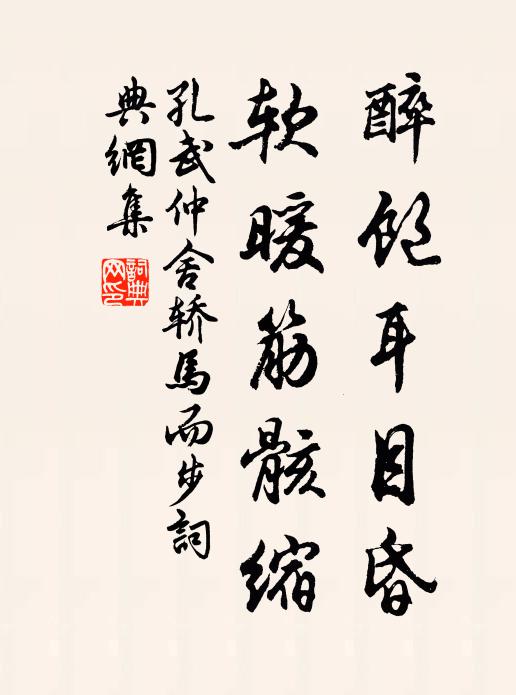 醉飽耳目昏
软暖筋骸缩
孔武仲舍轿馬而步詞
典網集
詞典网印